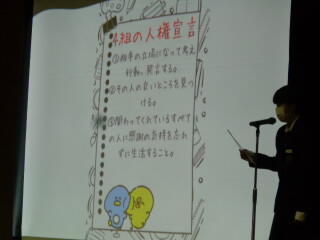 4組の人権宣言
①相手の立場になって考え
行動、発言する。
②その人の良いところを見つ
ける。
③関わってくれているすべて
の人に感謝の気持を忘れ
ずに生活すること。